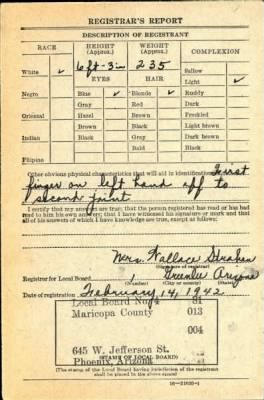 REGISTRAR'S REPORT
DESCRIPTION OF REGISTRANT
RACE HEIGHT (Approx.) WEIGHT (Approx.) COMPLEXION
6 ft - 3 in 235
White ✓ Sallow
EYES HAIR Light ✓
Negro Blue ✓ Blonde ✓ Ruddy
Gray Red Dark
Oriental Hazel Brown Freckled
Brown Black Light brown
Indian Black Gray Dark brown
Bald Black
Filipino
Other obvious physical characteristics that will aid in identification First
finger on left hand off to
second joint
I certify that my answers are true; that the person registered has read or has had
read to him his own answers; that I have witnessed his signature or mark and that
all of his answers of which I have knowledge are true, except as follows:
Mrs. Wallace
(Signature of registrar)
Registrar for Local Board 1 Greenlee Arizona
(Number) (City or county) (State)
Date of registration February 14, 1942
Local Board No. 4 81
Maricopa County 013
004
645 W. Jefferson St.
Phoenix, Arizona
(STAMP OF LOCAL BOARD)
(The stamp of the Local Board having jurisdiction of the registrant
shall be placed in the above space)